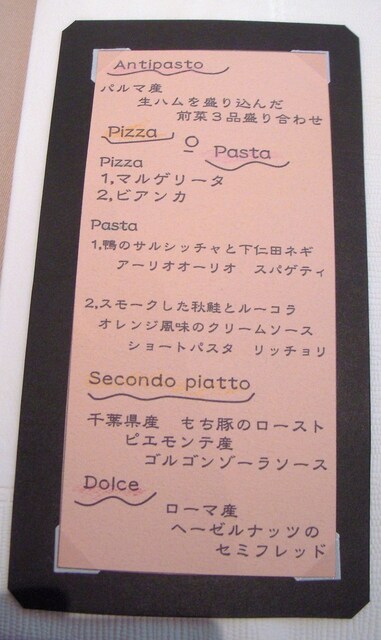 Antipasto
パルマ産
生ハムを盛り込んだ
前菜３品盛り合わせ
Pizza o Pasta
Pizza
1,マルゲリータ
2,ビアンカ
Pasta
1,鴨のサルシッチャと下仁田ネギ
アーリオオーリオ スパゲティ
2,スモークした秋鮭とルーコラ
オレンジ風味のクリームソース
ショートパスタ リッチョリ
Secondo piatto
千葉県産 もち豚のロースト
ピエモンテ産
ゴルゴンゾーラソース
Dolce
ローマ産
ヘーゼルナッツの
セミフレッド